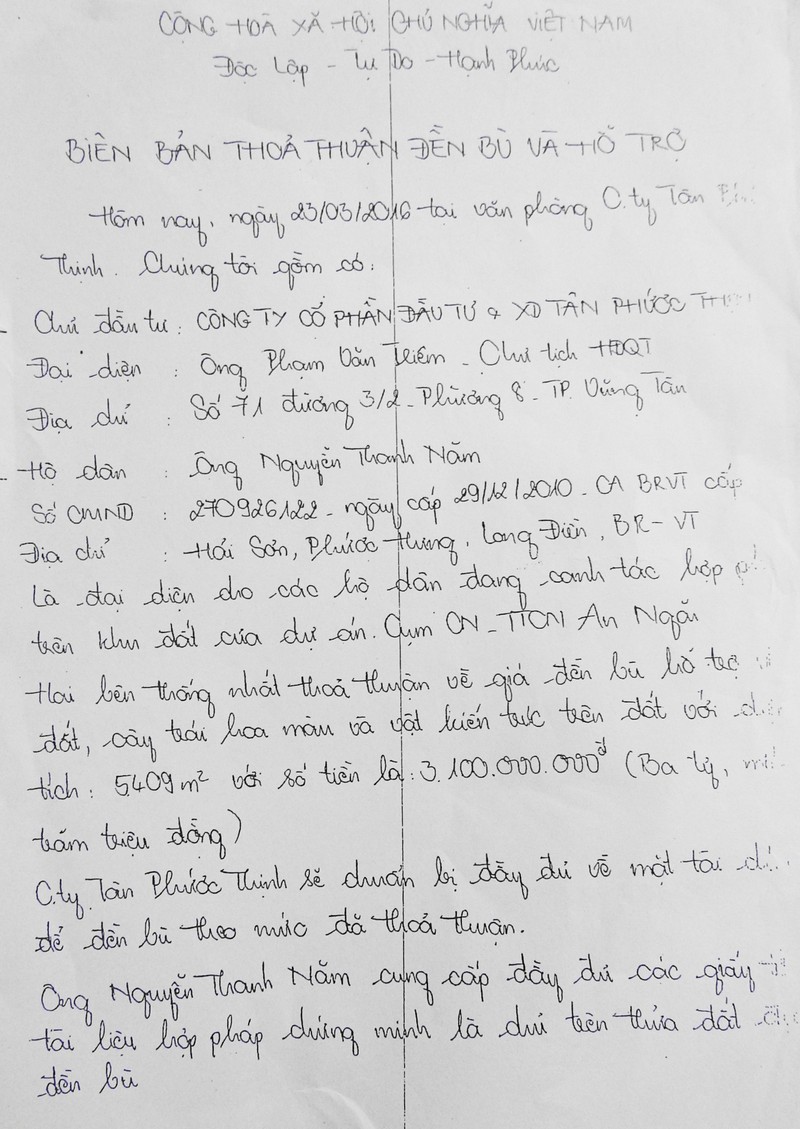 CỘNG HOÀ XÃ HỘI CHỦ NGHĨA VIỆT NAM
Độc Lập - Tự Do - Hạnh Phúc
BIÊN BẢN THOẢ THUẬN ĐỀN BÙ VÀ HỖ TRỢ
Hôm nay, ngày 23/03/2016 tại văn phòng C.ty Tân
Thịnh. Chúng tôi gồm có:
- Chủ đầu tư: CÔNG TY CỔ PHẦN ĐẦU TƯ & XD TÂN PHƯỚC THỊNH
Đại diện : Ông Phạm Văn Triêm - Chủ tịch HĐQT
Địa chỉ : Số 71 đường 3/2 - Phường 8 - TP. Vũng Tàu
- Hộ dân : Ông Nguyễn Thanh Năm
Số CMND : 270926122 - ngày cấp 29/12/2010 - CA BRVT cấp
Địa chỉ : Hải Sơn, Phước Hưng, Long Điền, BR-VT
Là đại diện cho các hộ dân đang canh tác hợp
trên khu đất của dự án. Cụm CN - TTCN An Ngãi
Hai bên thống nhất thoả thuận về giá đền bù hỗ trợ
đất, cây trái hoa màu và vật kiến trúc trên đất với
tích: 5409m² với số tiền là: 3.100.000.000đ (Ba tỷ, một
trăm triệu đồng)
C.ty Tân Phước Thịnh sẽ chuẩn bị đầy đủ về mặt tài
để đền bù theo mức đã thoả thuận.
Ông Nguyễn Thanh Năm cung cấp đầy đủ các giấy
tài liệu hợp pháp chứng minh là chủ trên thửa đất
đền bù